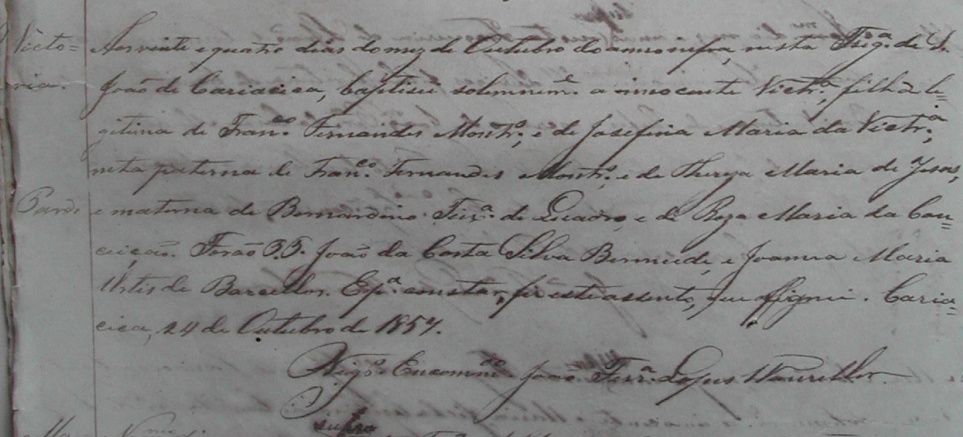 Victo=
ria.
Aos vinte e quatro dias do mez de Outubro do anno supra, nesta Frega. de S.
João de Cariacica, baptisei solemnemte. a innocente Victra., filha le=
gitima de Franco. Fernandes Montro., e de Josefina Maria da Victra.,
neta paterna de Franco. Fernandes Montro., e de Thereza Maria de Jesus,
Parda
e materna de Bernardino Teixra. de Quadro, e de Roza Maria da Con=
ceição. Forão P.P. João da Costa Silva Bermude, e Joanna Maria
de Barcellos. E pa. constar, fiz este assento, que assignei. Caria=
cica, 24 de Outubro de 1857.
Vigro. Encommdo. João Ferra. Lopes
supra